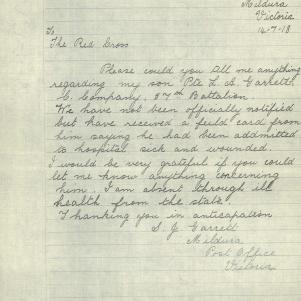 Mildura
Victoria
14-7-18
To
The Red Cross
Please could you All me anything
regarding my son Pte L A Garrett
C. Company, 37th Battalion.
We have not been officially notified
but have received a field card from
him saying he had been addmitted
to hospital sick and wounded.
I would be very grateful if you could
let me know anything concerning
him. I am absent through ill
health from the state.
Thanking you in anticapation
S. J. Garrett
Mildura
Post Office
Victoria